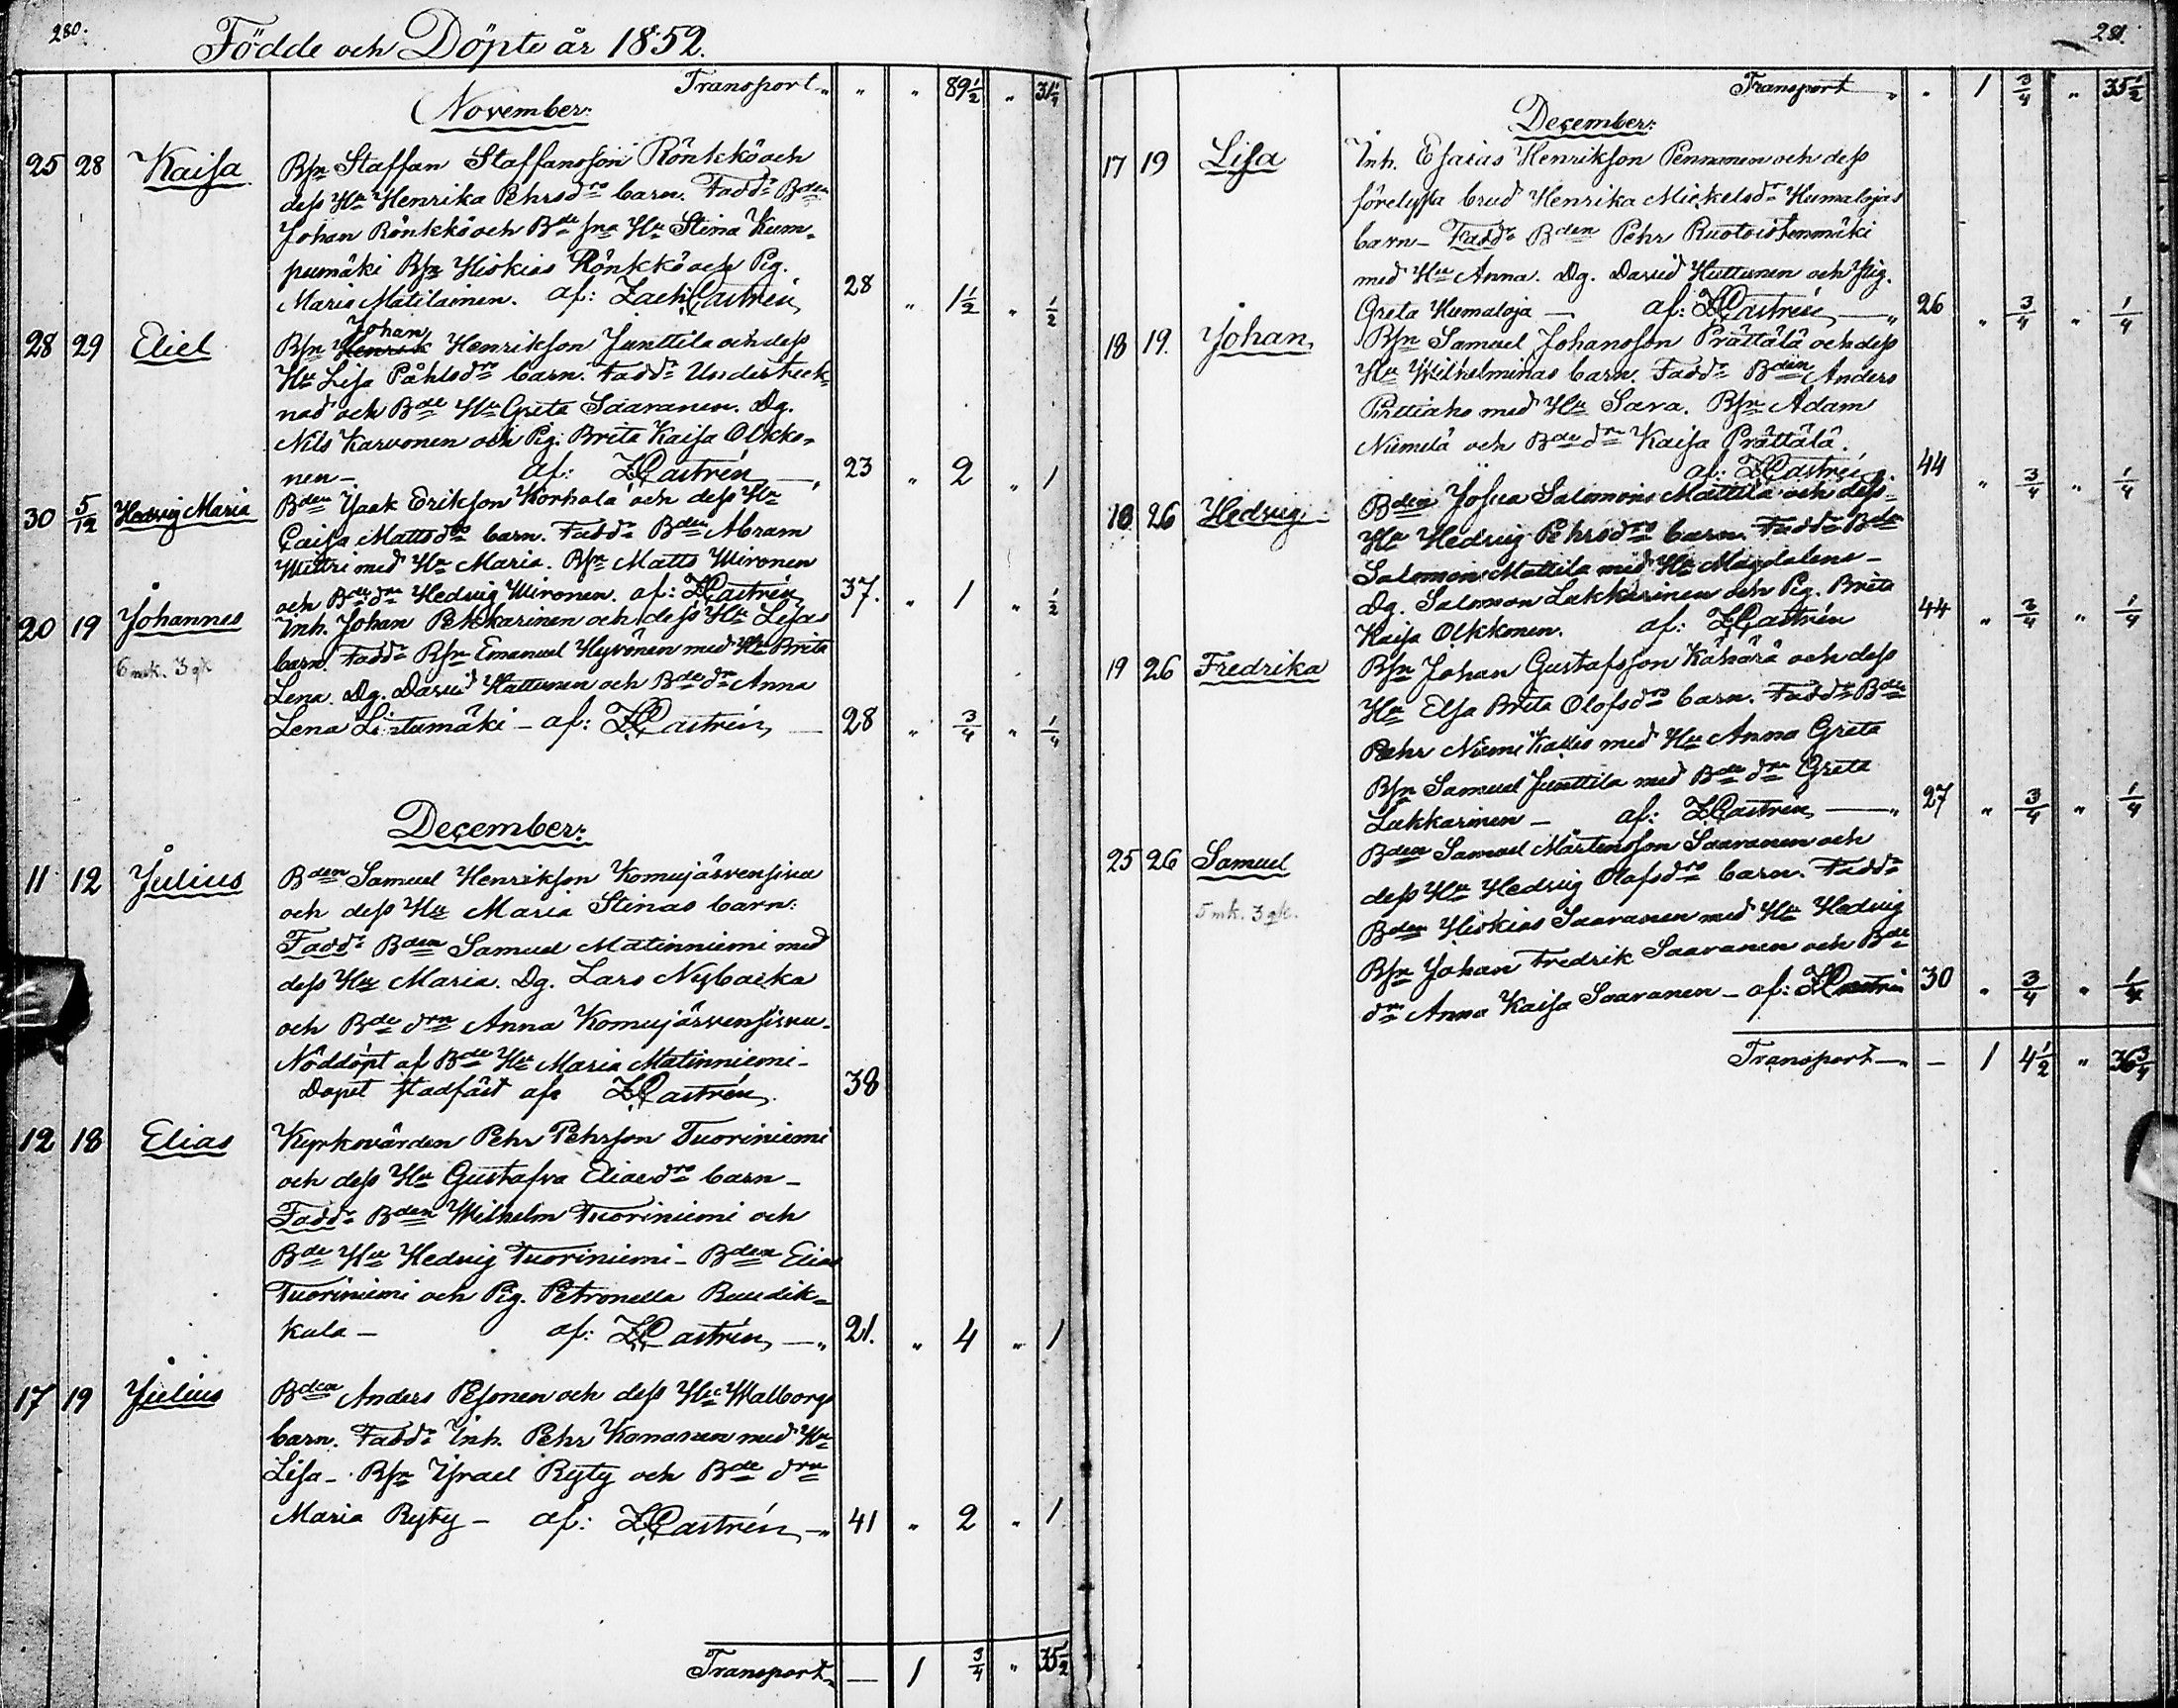 280.
Födde och Döpte år 1852.
Transport „ „ „ 89½ „ 31¼
November:
25 28 Kaisa Bsn Staffan Staffansson Rönkkö och
dess Hu Henrika Pehrsdrs barn. Faddr Bden
Johan Rönkkö och Bde sna Hu Stina Kum-
pumäki Bsn Hiskias Rönkkö och Pig.
Maria Matilainen. af: Zach: Castrén 28 „ 1½ „ ½
28 29 Eliel Bsn Johan Henrik Henrikson Junttila och dess
Hu Lisa Påhlsdrs barn. Faddr Underteck-
nad och Bde Hu Greta Saaranen. Dg.
Nils Karvonen och Pig. Brita Kaisa Olkko-
nen - af: Z Castrén 23 „ 2 „ 1
30 5/12 Hedvig Maria Bden Isak Erikson Korhola och dess Hu
Caisa Mattsdrs barn. Faddr Bden Abram
Wittri med Hu Maria. Bsn Matts Mironen
och Bde drn Hedvig Mironen. af: Z Castrén 37. „ 1 „ ½
20 19 Johannes Inh. Johan Pekkarinen och dess Hu Lisas
6 mk. 3 gk barn. Faddr Bsn Emanuel Heyvönen med Hu Brita
Lena. Dg. David Huttunen och Bde drn Anna
Lena Lintumäki - af: Z Castrén 28 „ ¾ „ ¼
December:
11 12 Julius Bden Samuel Henrikson Komujärvensivu
och dess Hu Maria Stinas barn:
Faddr Bden Samuel Matinniemi med
dess Hu Maria. Dg. Lars Nybacka
och Bde drn Anna Komujärvensivu.
Nöddöpt af Bde Hu Maria Matinniemi -
Dopet stadfäst af: Z Castrén 38
12 18 Elias Kyrkovärden Pehr Pehrson Tuoriniemi
och dess Hu Gustafva Eliaedrs barn -
Faddr Bden Wilhelm Tuoriniemi och
Bde Hu Hedvig Tuoriniemi - Bden Elias
Tuoriniemi och Pig. Petronella Buudik-
kala - af: Z Castrén 21. „ 4 „ 1
17 19 Julius Bden Anders Pesonen och dess Hu Walborgs
barn. Faddr Inh. Pehr Kananen med Hu
Lisa - Bsn Israel Ryty och Bde drn
Maria Ryty - af: Z Castrén 41 „ 2 „ 1
Transport — 1 ¾ „ 35½
281.
Transport „ „ 1 ¾ „ 35½
December:
17 19 Lisa Inh. Esaias Henrikson Pennanen och dess
förelysta brud Henrika Mickelsdr Humalojas
barn - Faddr Bden Pehr Ruotoistenmäki
med Hu Anna. Dg. David Huttunen och Pig.
Greta Humaloja — af: Z Castrén 26 „ ¾ „ ¼
18 19. Johan Bsn Samuel Johansson Prättälä och dess
Hu Wilhelminas barn. Faddr Bden Anders
Pirttiaho med Hu Sara. Bsn Adam
Niemelä och Bde drn Kaisa Prättälä.
af: Z Castrén 44 „ ¾ „ ¼
18 26 Hedvig Bden Josua Salomons Mattila och dess
Hu Hedvig Pehrsdrs barn. Faddr Bdn
Salomon Mattila med Hu Magdalena -
Dg. Salomon Lukkarinen och Pig. Brita
Kaisa Olkkonen. af: Z Castrén 44 „ ¾ „ ¼
19 26 Fredrika Bsn Johan Gustafsson Kähärä och dess
Hu Elsa Brita Olofsdrs barn. Faddr Bdn
Pehr Niemi Kallio med Hu Anna Greta
Bsn Samuel Junttila med Bde drn Greta
Lukkarinen - af: Z Castrén 27 „ ¾ „ ¼
25 26 Samuel Bden Samuel Mårtensson Saaranen och
dess Hu Hedvig Olofsdrs barn. Faddr
5 mk. 3 gk. Bden Hiskias Saaranen med Hu Hedvig
Bsn Johan Fredrik Saaranen och Bde
drn Anna Kaisa Saaranen - af: Z Castrén 30 „ ¾ „ ¼
Transport — — 1 4½ „ 36¾